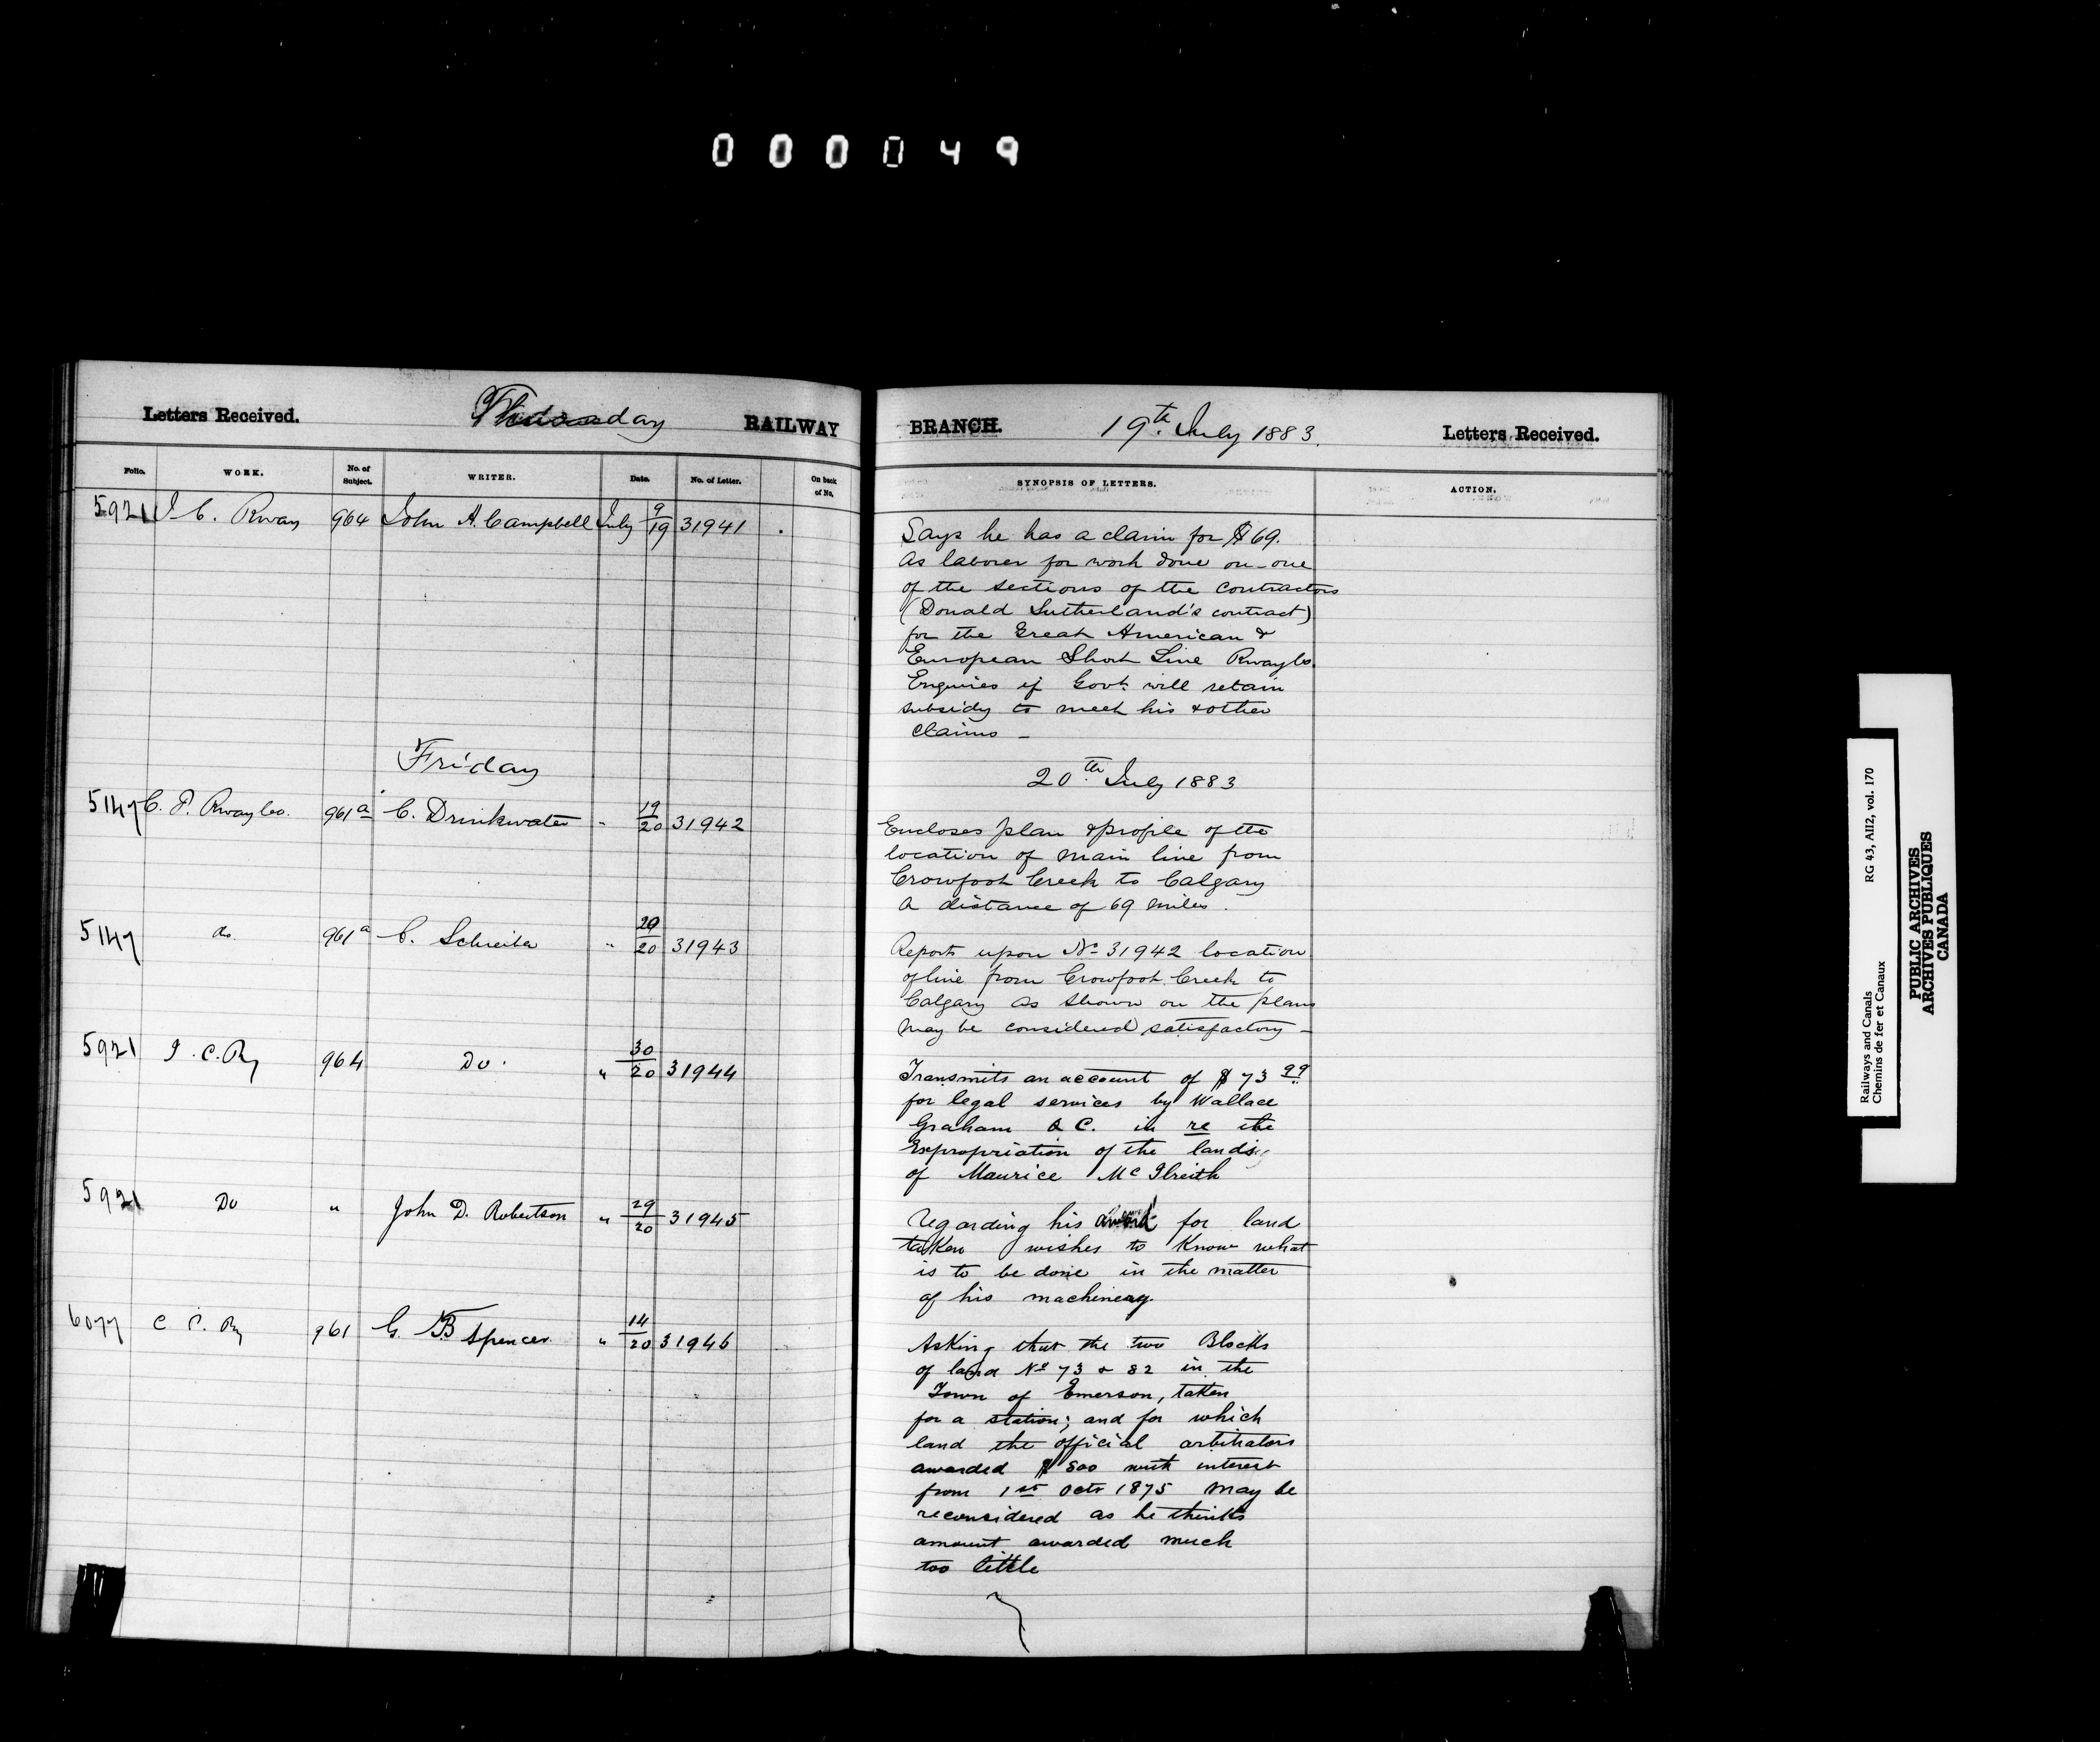 000049
Letters Received. Thursday RAILWAY
Folio. WORK. No. of Subject. WRITER. Date. No. of Letter. On back of No.
5921 I. C. Rway 964 John A. Campbell July 9/19 31941
Friday
5147 C. P. Rway Co. 961a C. Drinkwater " 19/20 31942
5147 do 961a C. Schreiber " 20/20 31943
5921 I. C. Ry 964 Do " 30/20 31944
5921 Do " John D. Robertson " 29/20 31945
6077 C P. Ry 961 G. B Spencer " 14/20 31946
BRANCH. 19th July 1883. Letters Received.
SYNOPSIS OF LETTERS. ACTION.
Says he has a claim for $69.
As laborer for work done on one
of the sections of the contractors
(Donald Sutherland's contract)
for the Great American &
European Short Line Rway Co.
Enquires if Govt. will retain
subsidy to meet his & other
claims –
20th July 1883
Encloses plan & profile of the
location of main line from
Crowfoot Creek to Calgary
A distance of 69 miles.
Reports upon No 31942 location
of line from Crowfoot Creek to
Calgary as shown on the plans
may be considered satisfactory –
Transmits an account of $73 99
for legal services by Wallace
Graham Q C. in re the
Expropriation of the lands
of Maurice McIlreith
Regarding his award for land
taken wishes to Know what
is to be done in the matter
of his machinery
Asking that the two Blocks
of land No 73 & 82 in the
Town of Emerson, taken
for a station; and for which
land the official arbitrators
awarded $500 with interest
from 1st Octr 1875 may be
reconsidered as he thinks
amount awarded much
too little
Railways and Canals RG 43, AII2, vol. 170
Chemins de fer et Canaux
PUBLIC ARCHIVES
ARCHIVES PUBLIQUES
CANADA